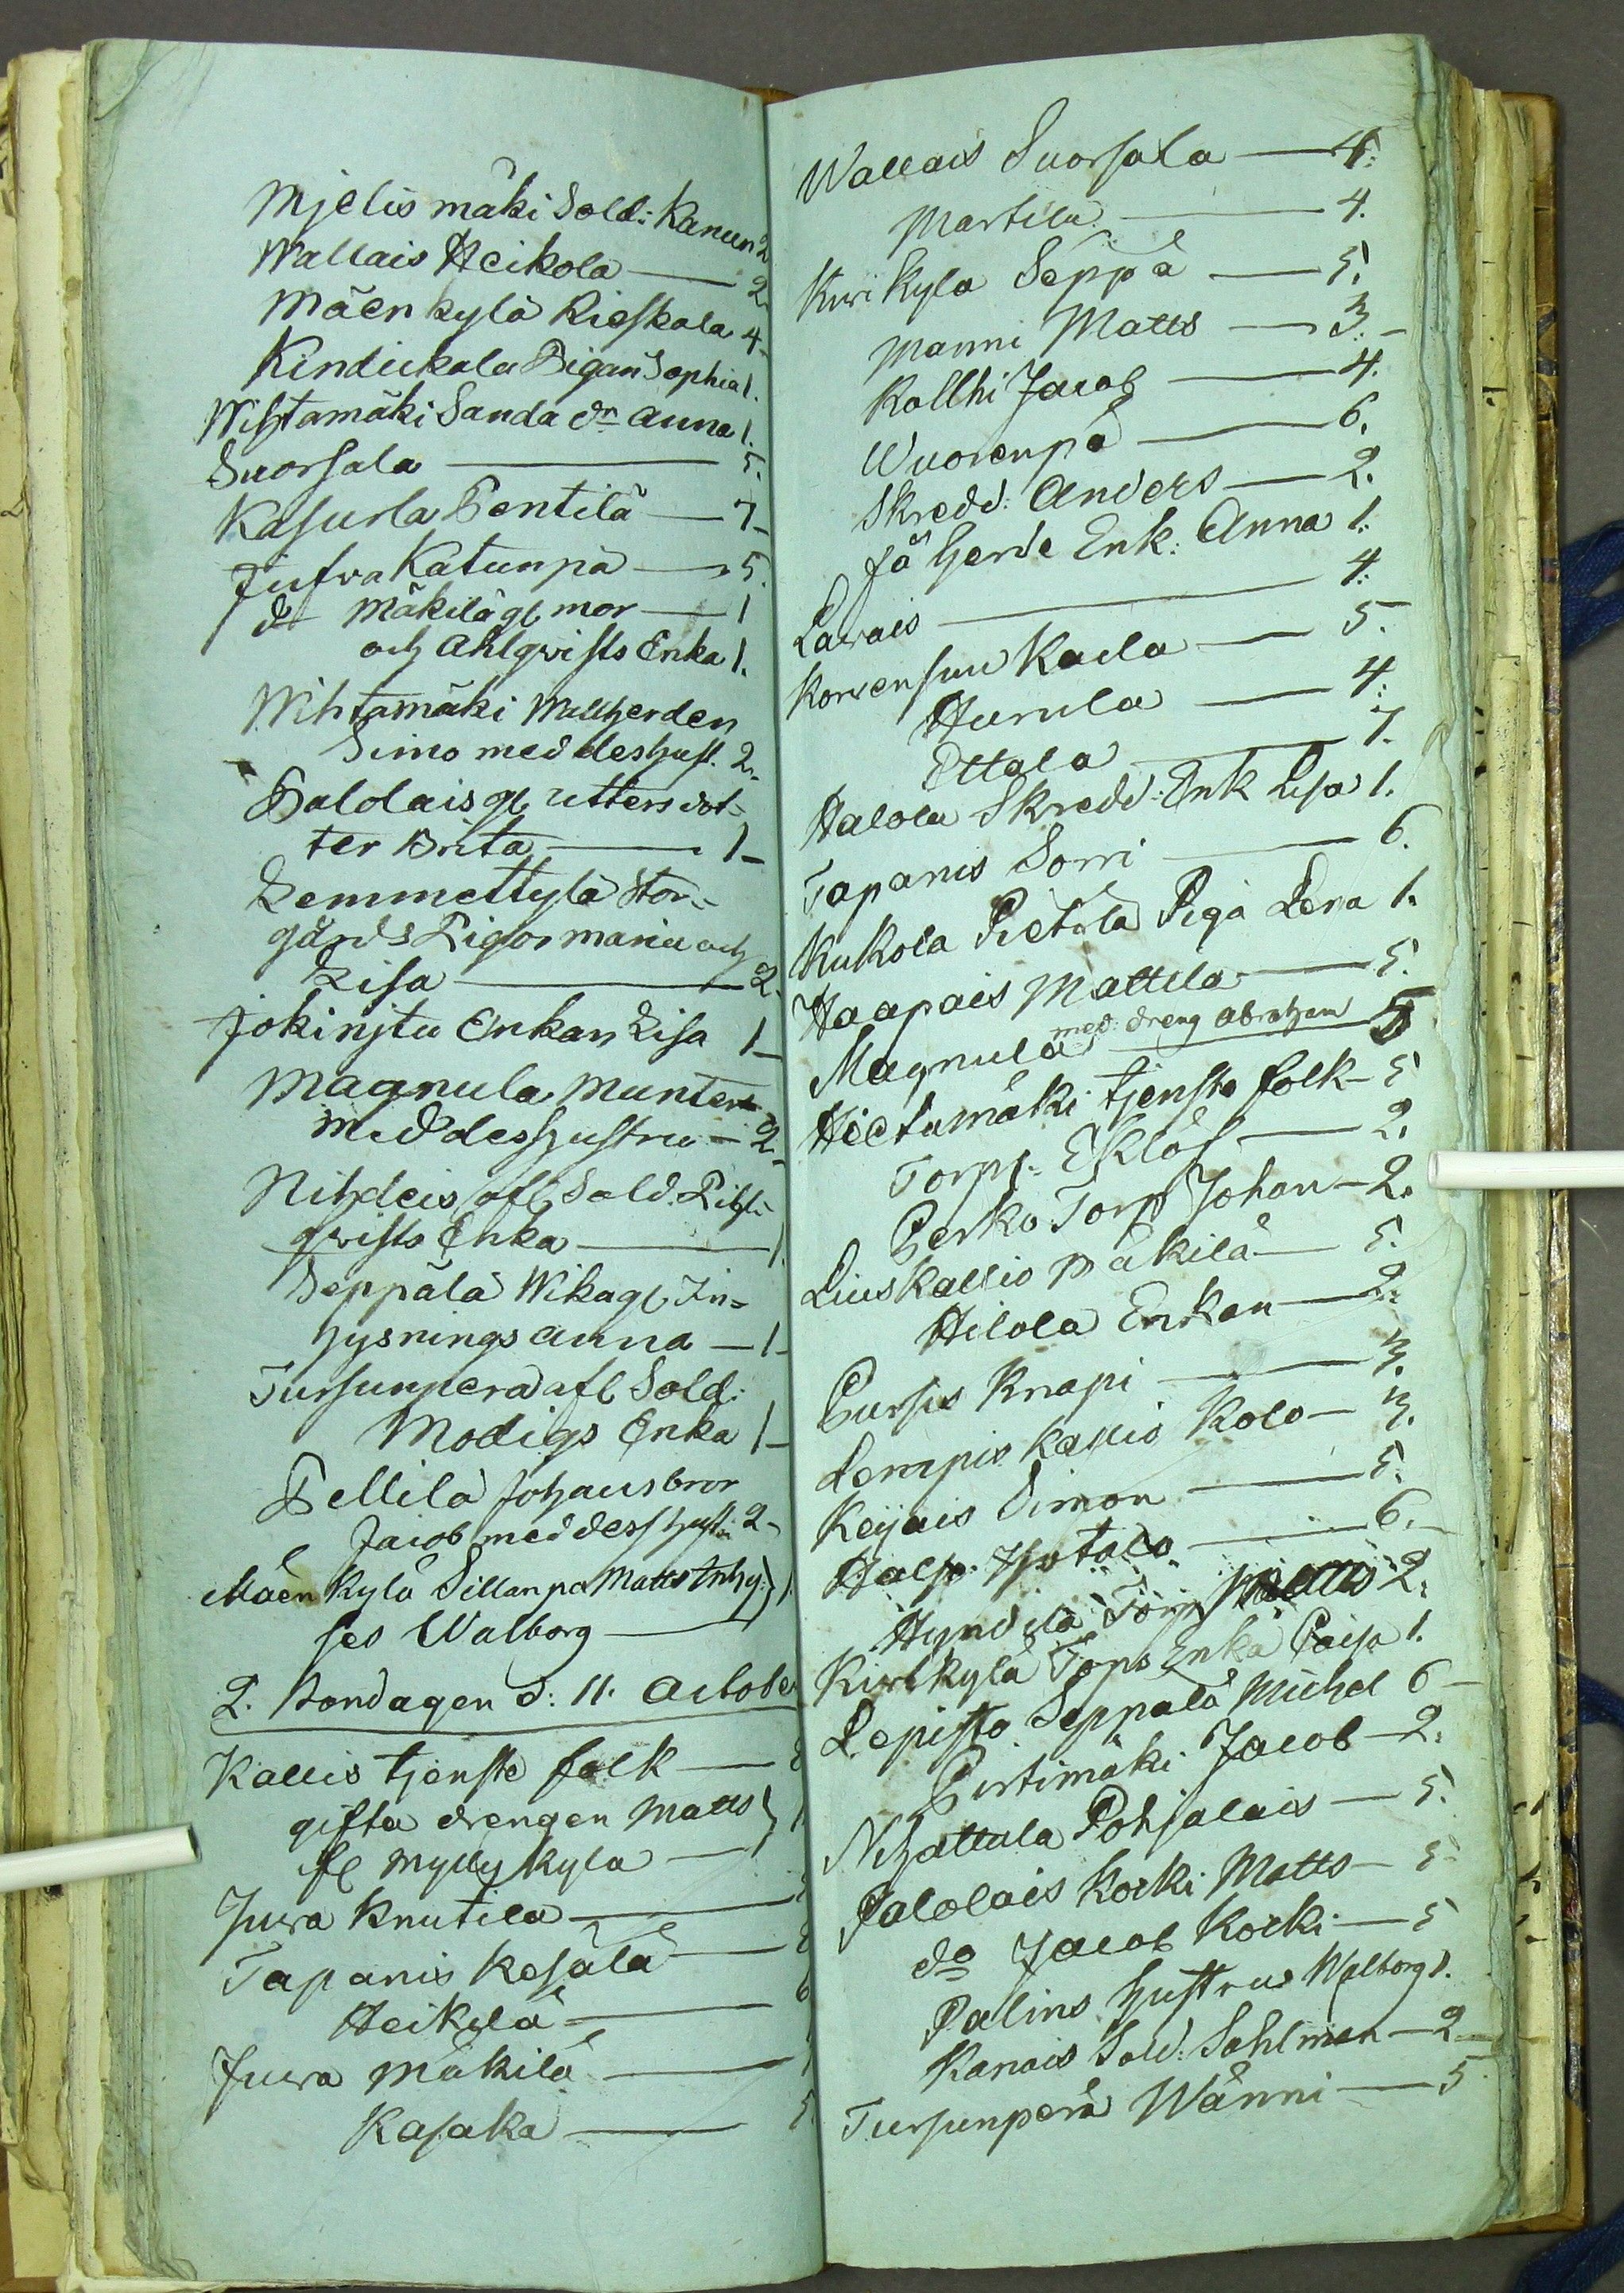 Mjelis mäki Sold: Kanun 2
Wallais Heikola — 2
Mäen kylä Rieskala 4-
Kindickala Pigan Sophia 1.
Wihtamäki Sanda dr Anna 1.
Suorsala — 5.
Kasurla Pentilä — 7-
Jufva Katunpä — 5.
d: Mäkilä gl mor — 1
och Ahlqvists Enka 1.
Wihtamäki Wallherden
Simo med des hust. 2-
Paldais gl rutters dot-
ter Brita — 1-
Lemmettylä Stor-
gårds Pigor maria och
Lisa — 2-
Jokinjtu Enkan Lisa 1-
Magnula Munter
med des hustru — 2-
Nihdeis afl Sold. Lihl-
qvists Enka — 1.
Seppälä Wikagl In-
hysnings anna — 1-
Tursunpera afl Sold:
Modigs Enka 1-
Pellilä Johans bror
Jacob med dess hustru 2-
Mäen Kylä Sillanpä Matts Inhy- 1.
ses Walborg —
2. Sondagen d: 11. October
Kallis tjenste folk — 8
gifta drengen Matts 1
fr Myllykyla —
Juva Knutila —
Tapanis Kesälä —
Heikilä — 6
Juva Mäkilä —
Kasaka — 5.
Wallais Suorsala — 4.
Martila — 4.
Kirikyla Seppä — 5.
Manni Matts — 3.-
Kollhi Jacob — 4.
Wuorenpä — 6.
Skredd: Anders — 2.
Få herde Enk: Anna 1.
Lavais — 4.
Korvensuu Kaila — 5.
Hurula — 4.
Ottola — 7.
Halola Skredd: Enk Lisa 1.
Tapanis Sorri — 6.
Kukola Pietila Piga Lena 1.
Haapais Mattila — 5.
Magnula med: dreng Abraham 5
Hietamäki tjenste folk — 5
Torp: Eklöf — 2.
Perko Torp Johan — 2.
Liuskallio Mäkilä — 5.
Hilola Enkan — 2.
Pursis Knapi — 3.
Lempis Kallio Kolo — 3.
Keijais Simon — 5.
Halp. Ho tala — 6.-
Hyndilä Matts 2.
Kirkkylä Tops Enka Caisa 1.
Lepisto Seppälä Michel 6-
Pirtimäki Jacob — 2.
Nhattula Pohjalais — 5.
Palolais Korki Matts — 5-
do Jacob Korki — 5
Palins hustru Walborg 1.
Kanais Sold: Sahlman — 2-
Tursunperä Wänni — 5